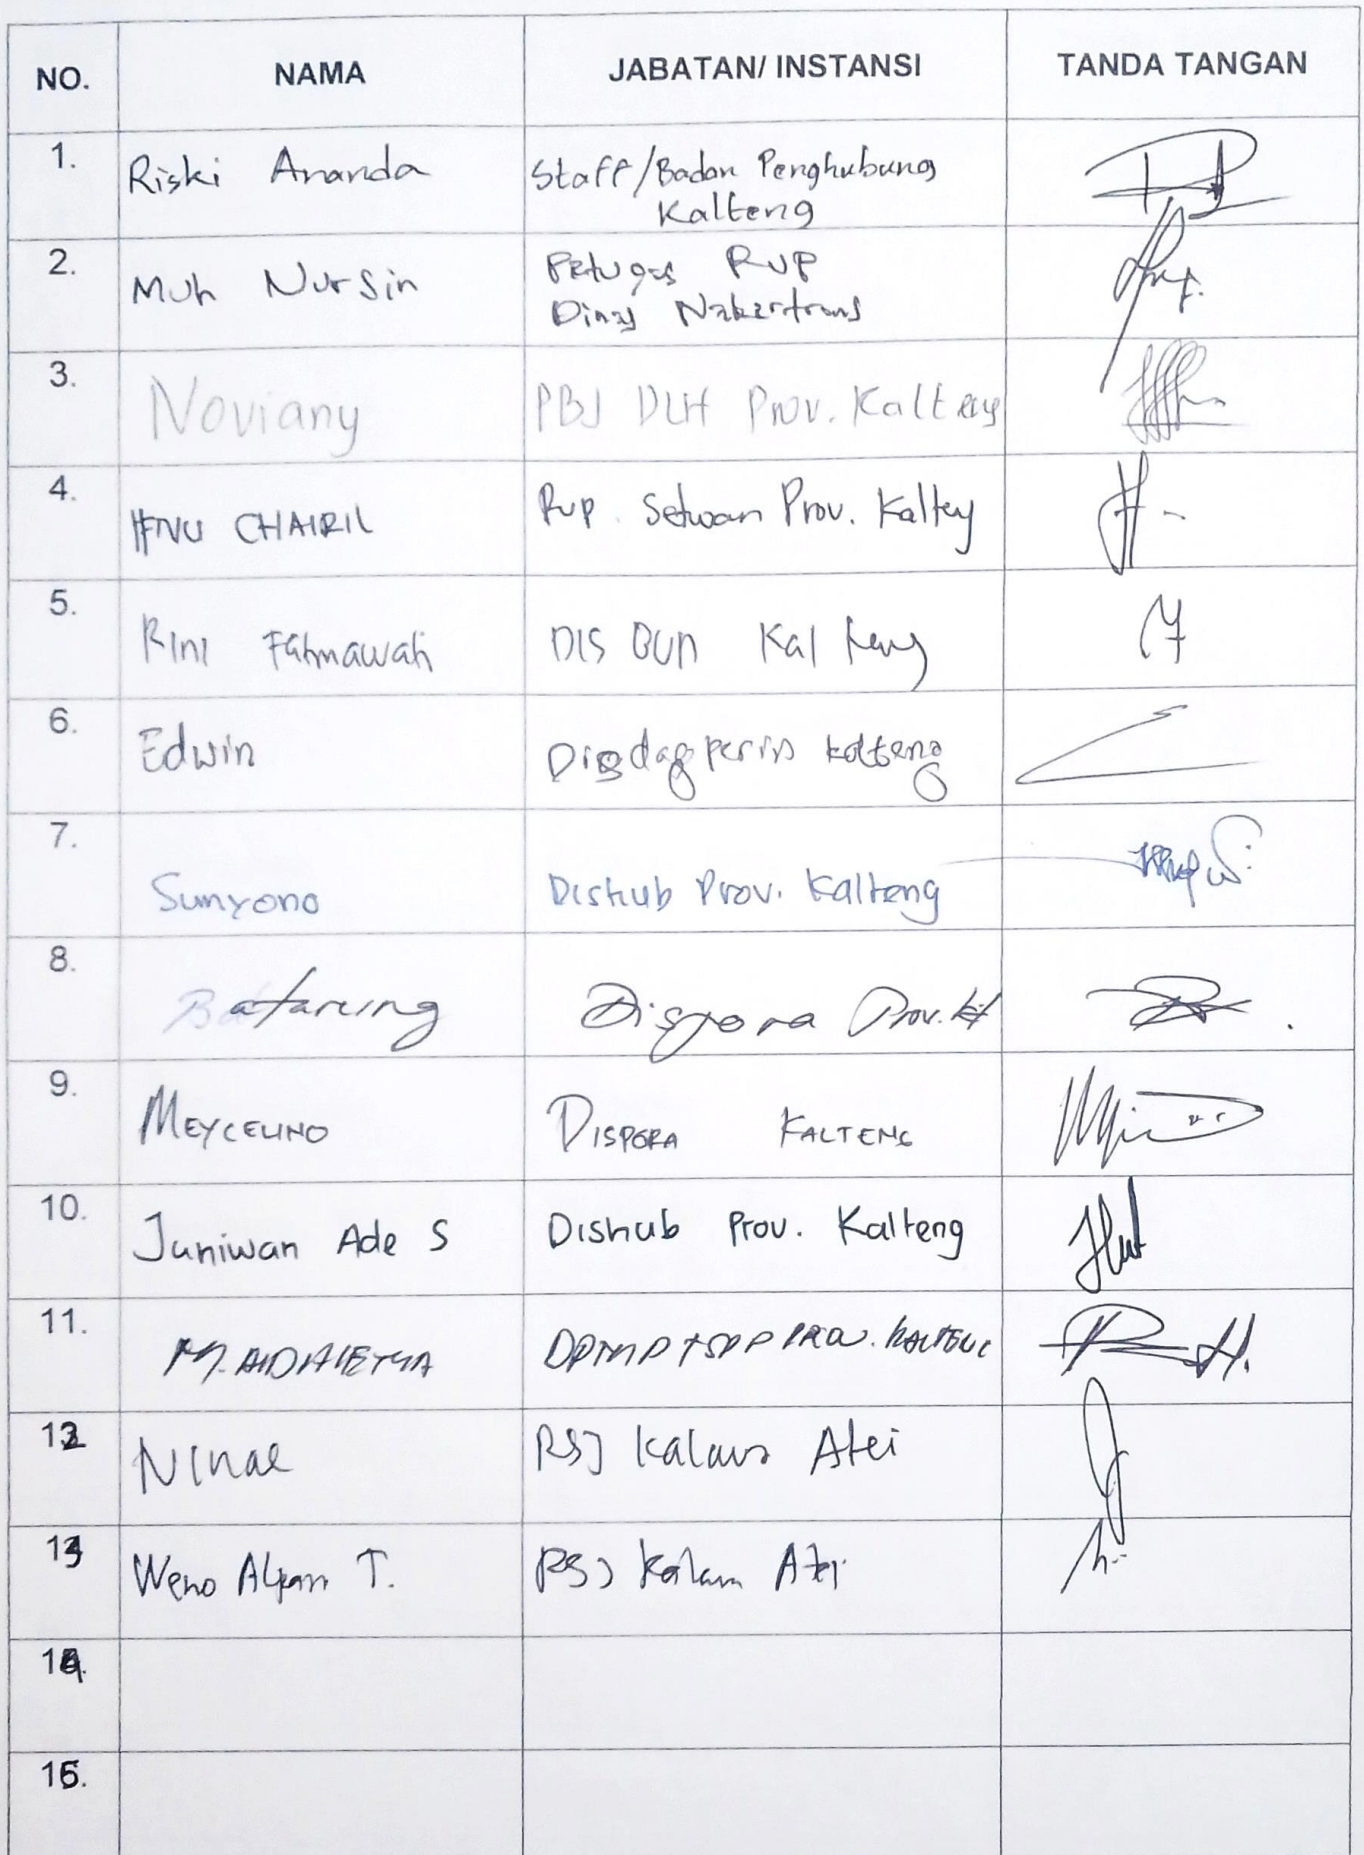 NO. NAMA JABATAN/ INSTANSI TANDA TANGAN
1. Riski Ananda Staff/Badan Penghubung
Kalteng
2. Muh Nursin Petugas RUP
Dinas Nakertrans
3. Noviany PBJ DLH Prov. Kalteng
4. CHAIRIL Rup. Setwan Prov. Kalteng
5. Rini Fatmawati DISBUN Kalteng
6. Edwin Disdagperin Kalteng
7. Sunyono Dishub Prov. Kalteng
8. Batareng Dispora Prov.
9. MEYCELINO DISPORA KALTENG
10. Juniwan Ade S Dishub Prov. Kalteng
11. DPMPTSP PROV. KALTENG
12 RSJ Kalawa Atei
13 T. RSJ Kalawa Atei
14.
15.